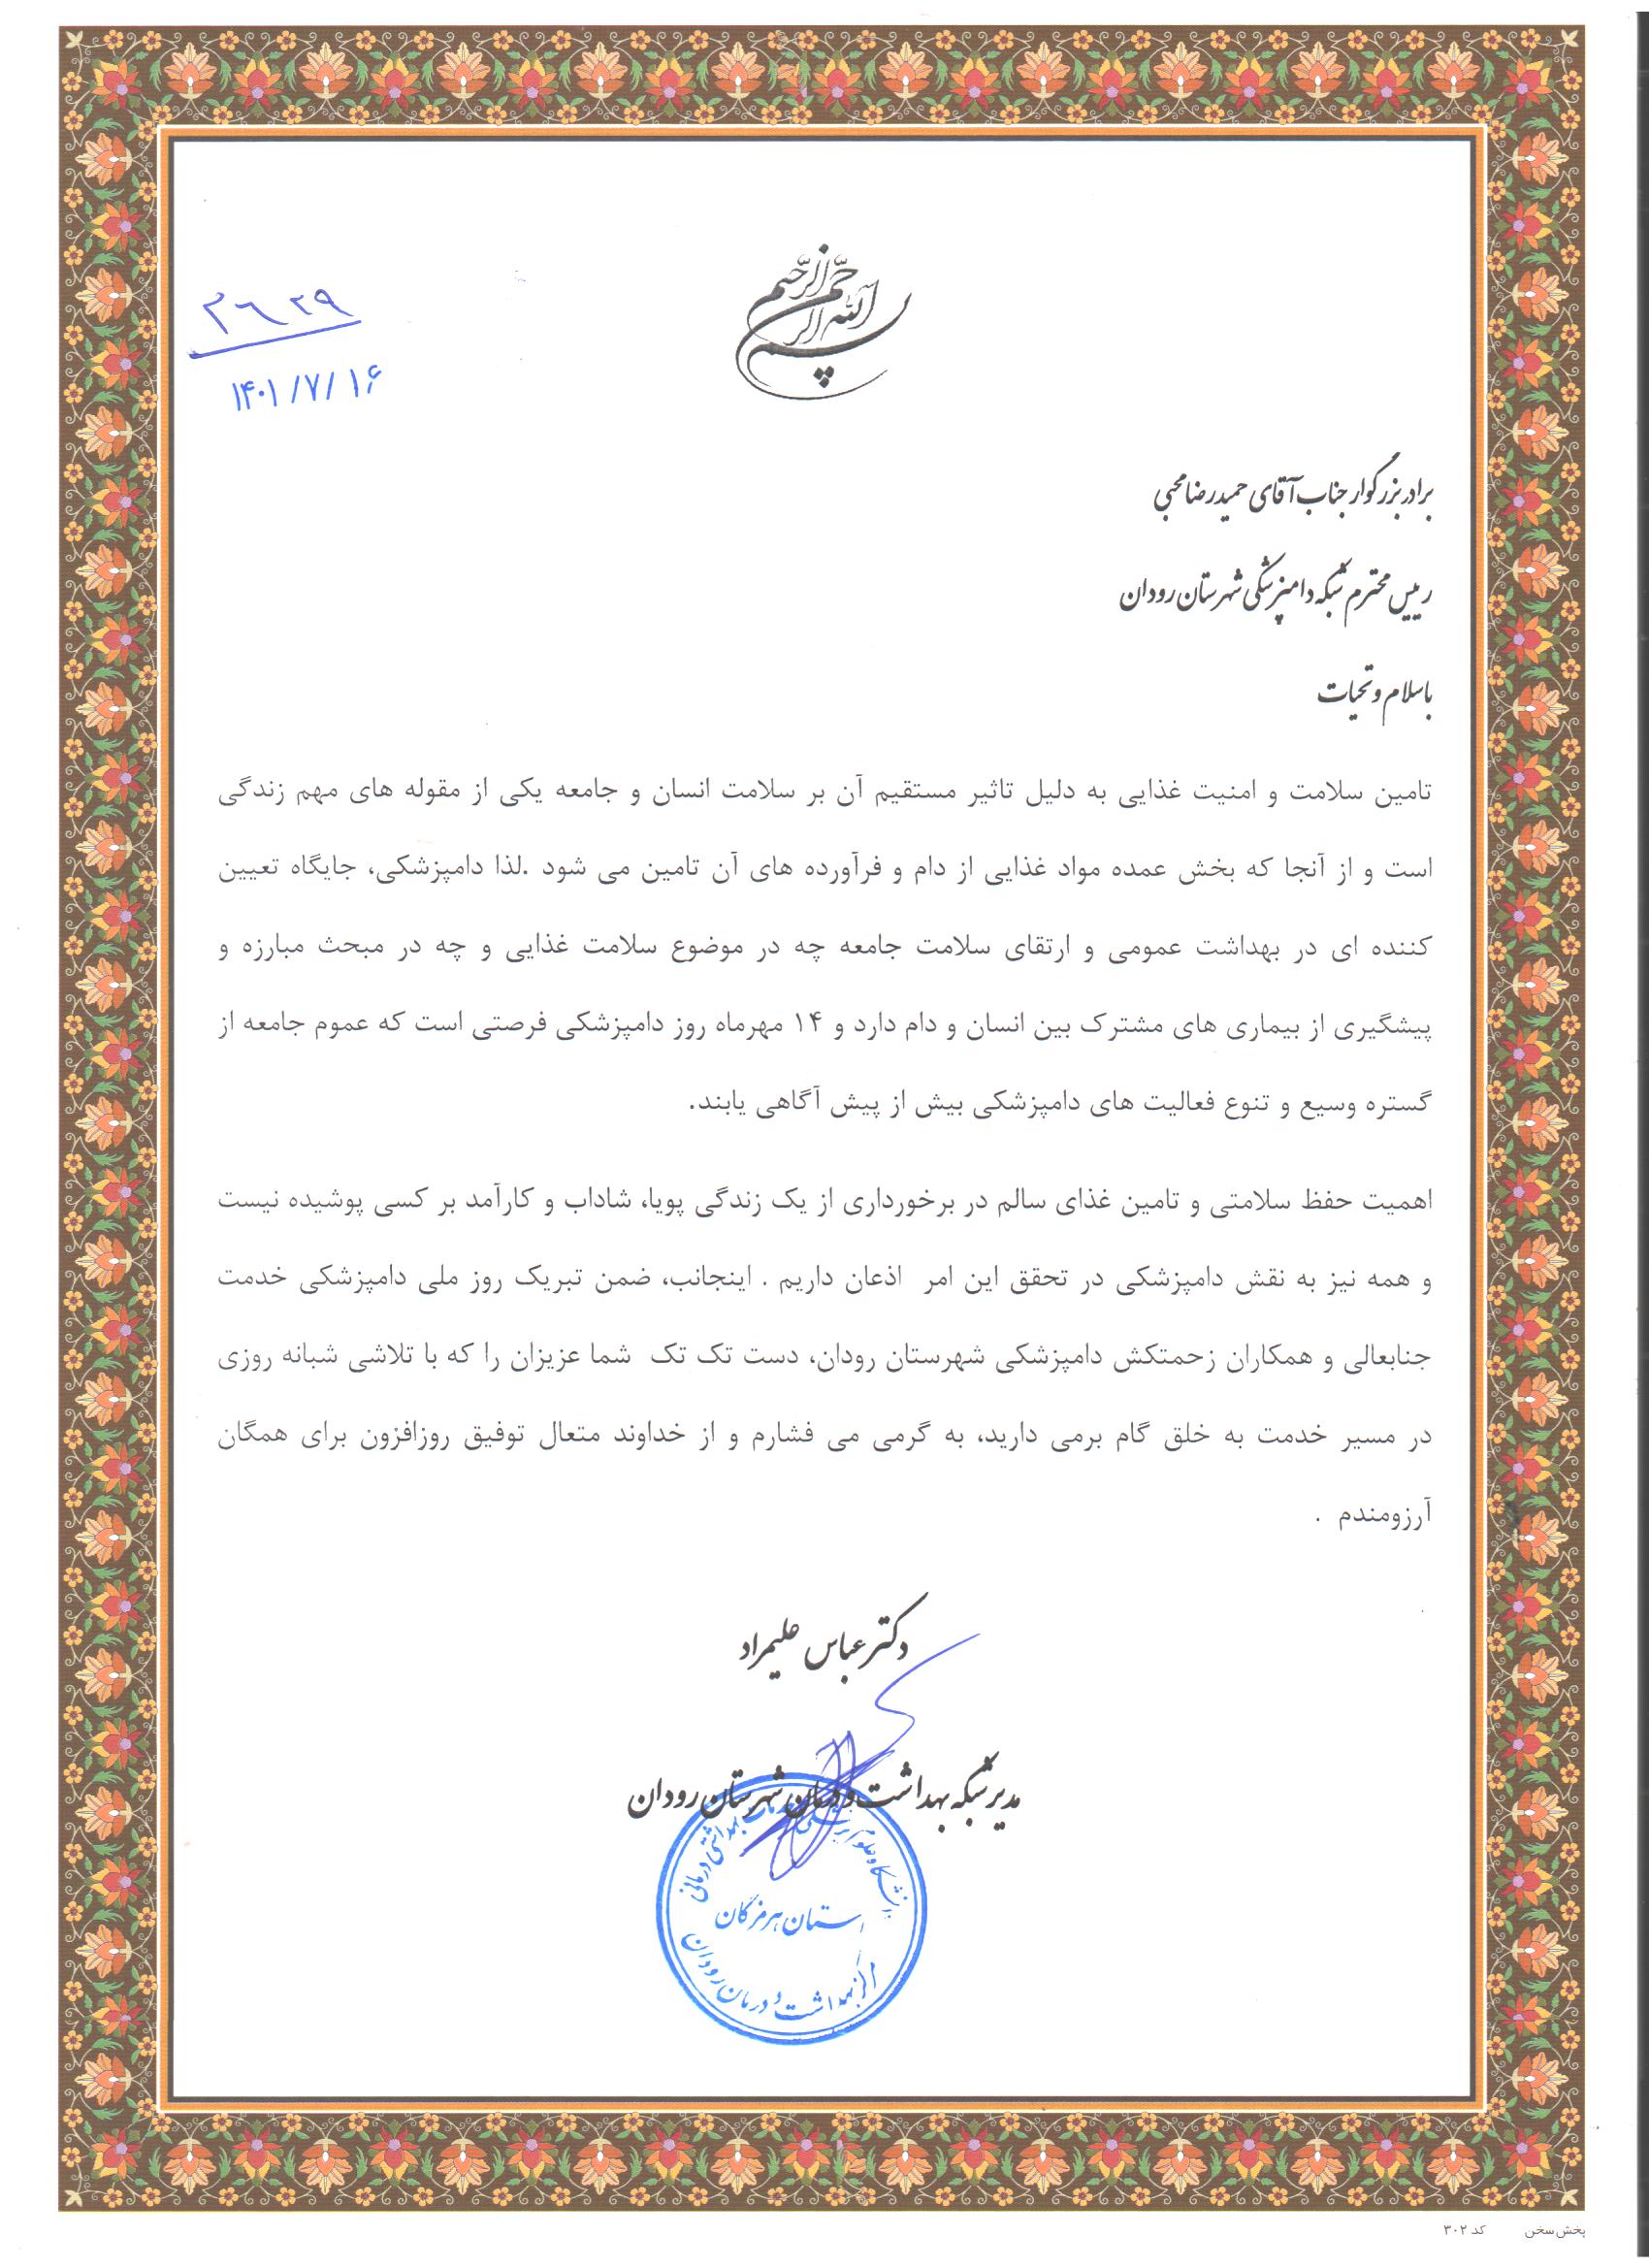 بسم الله الرحمن الرحیم
۳۶۲۹
۱۴۰۱/۷/۱۶
برادر بزرگوار جناب آقای حمیدرضا محبی
رییس محترم شبکه دامپزشکی شهرستان رودان
با سلام و تحیات
تامین سلامت و امنیت غذایی به دلیل تاثیر مستقیم آن بر سلامت انسان و جامعه یکی از مقوله های مهم زندگی
است و از آنجا که بخش عمده مواد غذایی از دام و فرآورده های آن تامین می شود .لذا دامپزشکی، جایگاه تعیین
کننده ای در بهداشت عمومی و ارتقای سلامت جامعه چه در موضوع سلامت غذایی و چه در مبحث مبارزه و
پیشگیری از بیماری های مشترک بین انسان و دام دارد و ۱۴ مهرماه روز دامپزشکی فرصتی است که عموم جامعه از
گستره وسیع و تنوع فعالیت های دامپزشکی بیش از پیش آگاهی یابند.
اهمیت حفظ سلامتی و تامین غذای سالم در برخورداری از یک زندگی پویا، شاداب و کارآمد بر کسی پوشیده نیست
و همه نیز به نقش دامپزشکی در تحقق این امر اذعان داریم . اینجانب، ضمن تبریک روز ملی دامپزشکی خدمت
جنابعالی و همکاران زحمتکش دامپزشکی شهرستان رودان، دست تک تک شما عزیزان را که با تلاشی شبانه روزی
در مسیر خدمت به خلق گام برمی دارید، به گرمی می فشارم و از خداوند متعال توفیق روزافزون برای همگان
آرزومندم .
دکتر عباس علیمراد
مدیر شبکه بهداشت و درمان شهرستان رودان
دانشگاه علوم پزشکی و خدمات بهداشتی درمانی
استان هرمزگان
مرکز بهداشت و درمان رودان
پخش سخن کد ۳۰۲